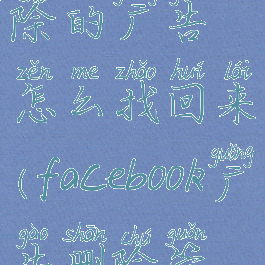 除的广告
zěn me zhǎo huí lái
怎么找回来
guǎng
(facebook广
gào shān chú guǎn
告删除管